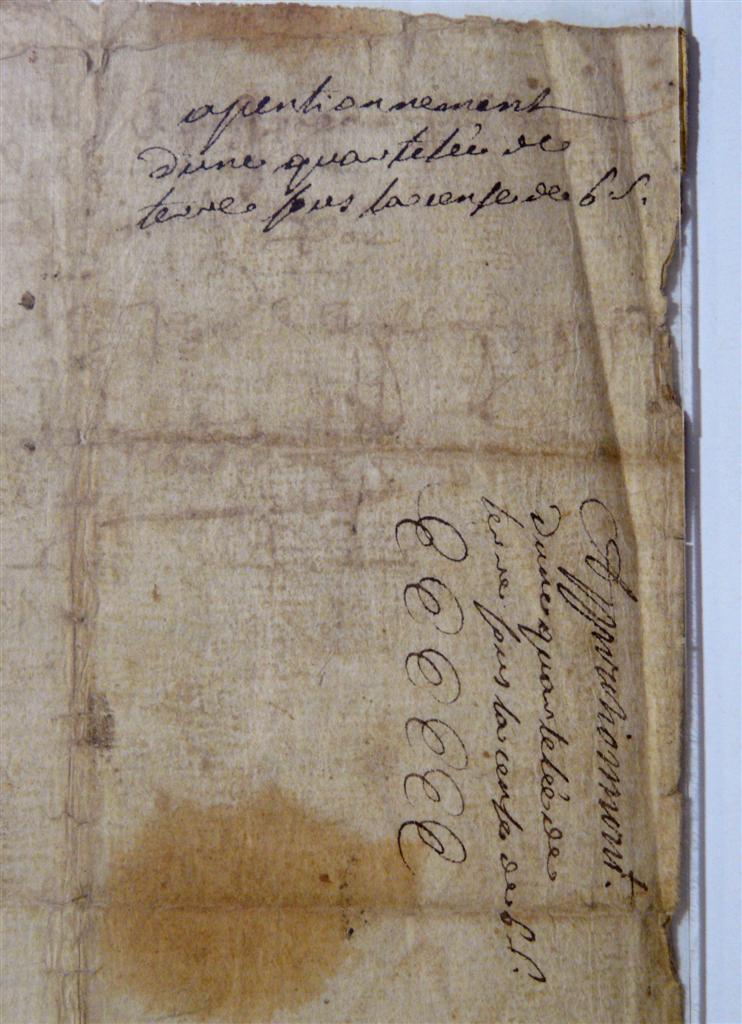 apentionnement
dune quartelée de
terre sous la cense de 6 s.
Appentionnement.
dune quartelée de
terre sous la cense de 6 s.